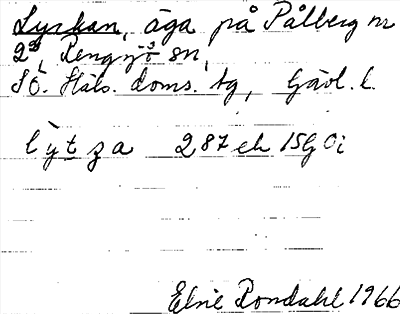 Lyckan, äga på Pålberg nr
2³, Rengsjö sn,
SÖ. Häls. doms. tg, Gävl. l.
lỳtza 287 eh 15G 0i
Elsie Rondahl 1966